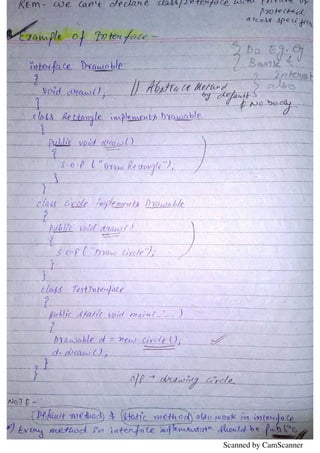 Rem:- we can't declare class/Interface with private or
protected
access specifier
Example of Interface -
Do E.g. of
Bank &
Interest
also
interface Drawable
{
void draw(); // Abstract Method
by default
& No body.
}
class Rectangle implements Drawable
{
public void draw()
{
S.o.p ("Draw Rectangle");
}
}
class circle implements Drawable
{
public void draw()
{
S.o.p ("Draw circle");
}
}
class TestInterface
{
public static void main(... )
{
Drawable d = new circle();
d.draw();
}
}
o/p → drawing circle
NOTE -
(Default method) & (static method) also work in interface
*) Every method in interface implementation should be public
Scanned by CamScanner